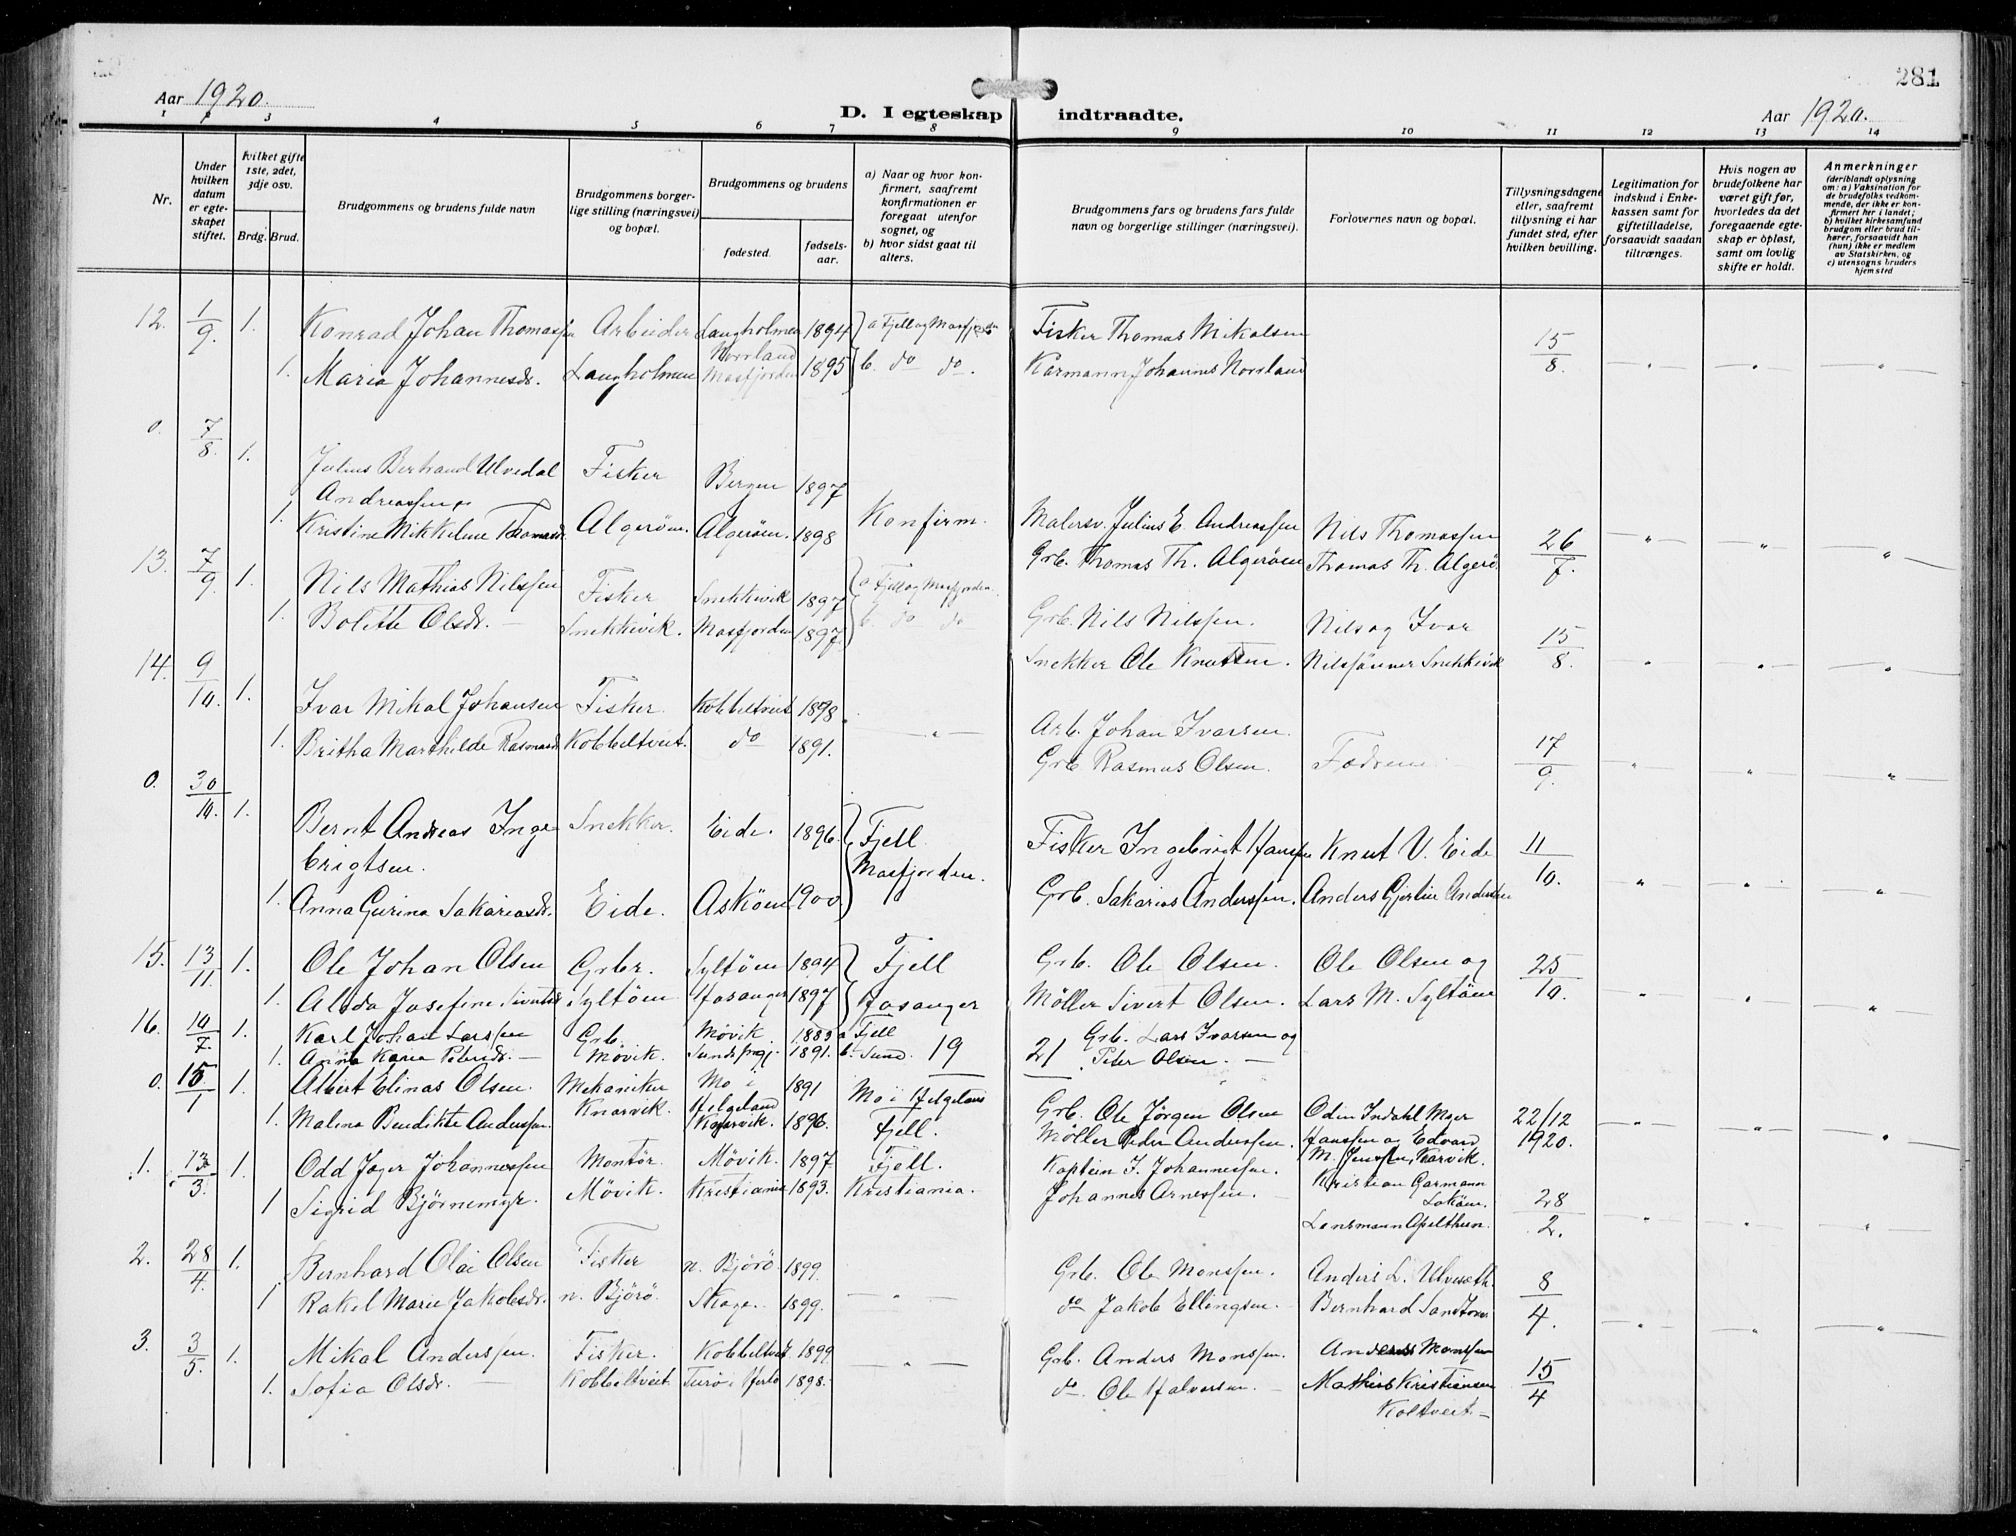 281
Aar 1920.
D. I egteskap indtraadte.
Aar 1920.
1 2 3 4 5 6 7 8 9 10 11 12 13 14
Nr.
Under hvilken datum er egteskapet stiftet.
hvilket gifte 1ste, 2det, 3dje osv.
Brdg. Brud.
Brudgommens og brudens fulde navn
Brudgommens borgerlige stilling (næringsvei) og bopæl.
Brudgommens og brudens
fødested.
fødselsaar.
a) Naar og hvor konfirmert, saafremt konfirmationen er foregaat utenfor sognet, og
b) hvor sidst gaat til alters.
Brudgommens fars og brudens fars fulde navn og borgerlige stillinger (næringsvei).
Forlovernes navn og bopæl.
Tillysningsdagene eller, saafremt tillysning ei har fundet sted, efter hvilken bevilling.
Legitimation for indskud i Enkekassen samt for giftetilladelse, forsaavidt saadan tiltrænges.
Hvis nogen av brudefolkene har været gift før, hvorledes da det foregaaende egteskap er opløst, samt om lovlig skifte er holdt.
Anmerkninger
(deriblandt oplysning om: a) Vaksination for de brudefolks vedkommende, der ikke er konfirmert her i landet; b) hvilket kirkesamfund brudgom eller brud tilhører, forsaavidt han (hun) ikke er medlem av Statskirken, og c) utensogns bruders hjemsted
12. 1/9 1. Konrad Johan Thomassen Arbeider Langholmen 1894 a Fjell og Masfjorden Fisker Thomas Mikalsen 15/8
1. Maria Johannesdr. Langholmen Norrland Masfjorden 1895 b. do do. Karmann Johannes Norrland
0. 7/8 1. Julius Bertrand Ulvedal Andreassen Fisker Bergen 1897 Konfirm. Malersv. Julius E. Andreassen Nils Thomassen 26/7.
1. Kristine Mikkeline Thomasdr. Algerøen. Algerøen. 1898 Grb. Thomas Th. Algerøen Thomas Th. Algerø.
13. 7/9 1. Nils Mathias Nilssen Fisker Snekkevik 1897 a. Fjell og Masfjorden. Grb. Nils Nilssen. Nils og Ivar 15/8.
1. Bolette Olsdr. Snekkevik. Masfjorden 1897. b. do do Snekker Ole Knutsen. Nilssønner Snekkevik
14. 9/10. 1. Ivar Mikal Johansen Fisker. Kobbeltveit 1898. Arb. Johan Ivarsen. 17/9.
1. Britha Marthilde Rasmusd. Kobbeltveit. do 1891. Grb. Rasmus Olsen. Fædrene
0. 30/10. 1. Bernt Andreas Inge brigtsen. Snekker. Eide. 1896. Fjell Fisker Ingebrigt Hanssen Knut V. Eide 11/10.
1. Anna Gurina Sakariasdr. Eide. Askøen 1900. Masfjorden. Grb. Sakarias Anderssen. Anders Gjertin Andersen
15. 13/11. 1. Ole Johan Olsen Grbr. Syltøen 1894 Fjell Grb. Ole Olsen. Ole Olsen og 25/10.
1. Alida Josefine Sivertsdr Syltøen Hosanger 1897 Hosanger Møller Sivert Olsen. Lars M. Syltøen
16. 10/7. 1. Karl Johan Larssen Grb. Møvik 1883 a Fjell Grb. Lars Ivarsen og
1. Anna Karia Petersdr. Møvik. Sunds prgj. 1891. b. Sund. 19 21 Peter Olsen.
0. 15/1 1. Albert Elinas Olsen. Mekaniker Mo i Helgeland 1891 Mo i Helgeland Grb. Ole Jørgen Olsen Odin Indahl Mger 22/12
1. Malena Benedikte Anderssen. Knarvik. Knarvik. 1896. Fjell. Møller Peder Anderssen. Hanssen og Edvard M. Jenssen, Karvik. 1920.
1. 13/3. 1. Odd Jager Johannessen Montør. Møvik. 1897 Fjell. Kaptein J. Johannessen. Kristian Garmann 28/2.
1 Sigrid Bjørnemyr. Møvik. Kristiania 1893. Kristiania. Johannes Arnessen. Lensmann Apelthun.
2. 28/4. 1. Bernhard Olai Olsen Fisker n. Bjørø. 1899. Grb. Ole Monssen. Anders L. Ulveseth 8/4.
1 Rakel Marie Jakobsdr. n. Bjørø. Skage. 1899. do Jakob Ellingsen. Bernhard Sandtorv
3. 3/5. 1. Mikal Anderssen. Fisker. Kobbeltveit. 1899. Grb. Anders Monssen. Anders Monssen 15/4
1. Sofia Olsdr. Kobbeltveit. Turø i Herlø 1898. do. Ole Halvorsen. Mathias Kristiansen
Koltveit.